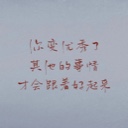 你变优秀了
其他的事情
才会跟着好起来